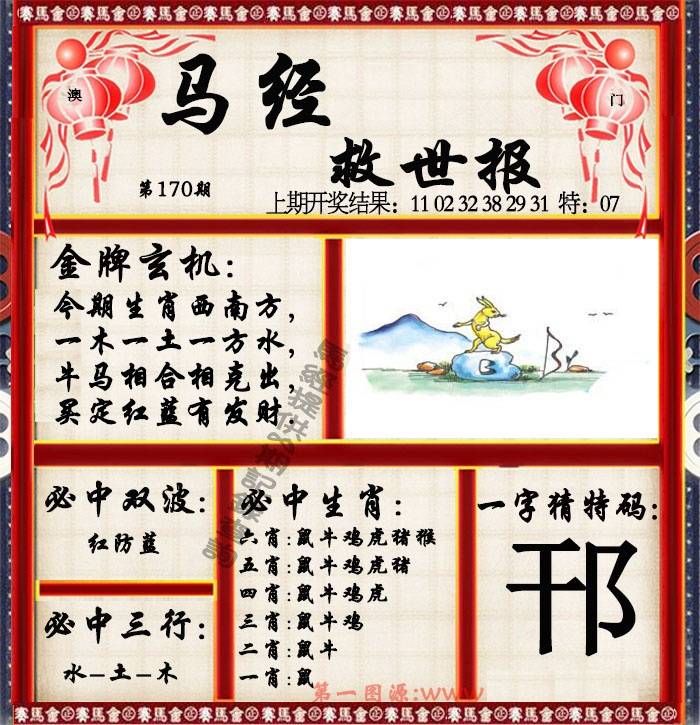 賽馬會 賽馬會 賽馬會 賽馬會 賽馬會 賽馬會 賽馬會 賽馬會 賽馬會 賽馬會
澳
门
马经
救世报
第170期
上期开奖结果：11 02 32 38 29 31 特：07
金牌玄机：
今期生肖西南方，
一木一土一方水，
牛马相合相克出，
买定红蓝有发财.
必中双波：
红防蓝
必中三行：
水-土-木
必中生肖：
六肖:鼠牛鸡虎猪猴
五肖:鼠牛鸡虎猪
四肖:鼠牛鸡虎
三肖:鼠牛鸡
二肖:鼠牛
一肖:鼠
一字猜特码：
邗
第一图源:www